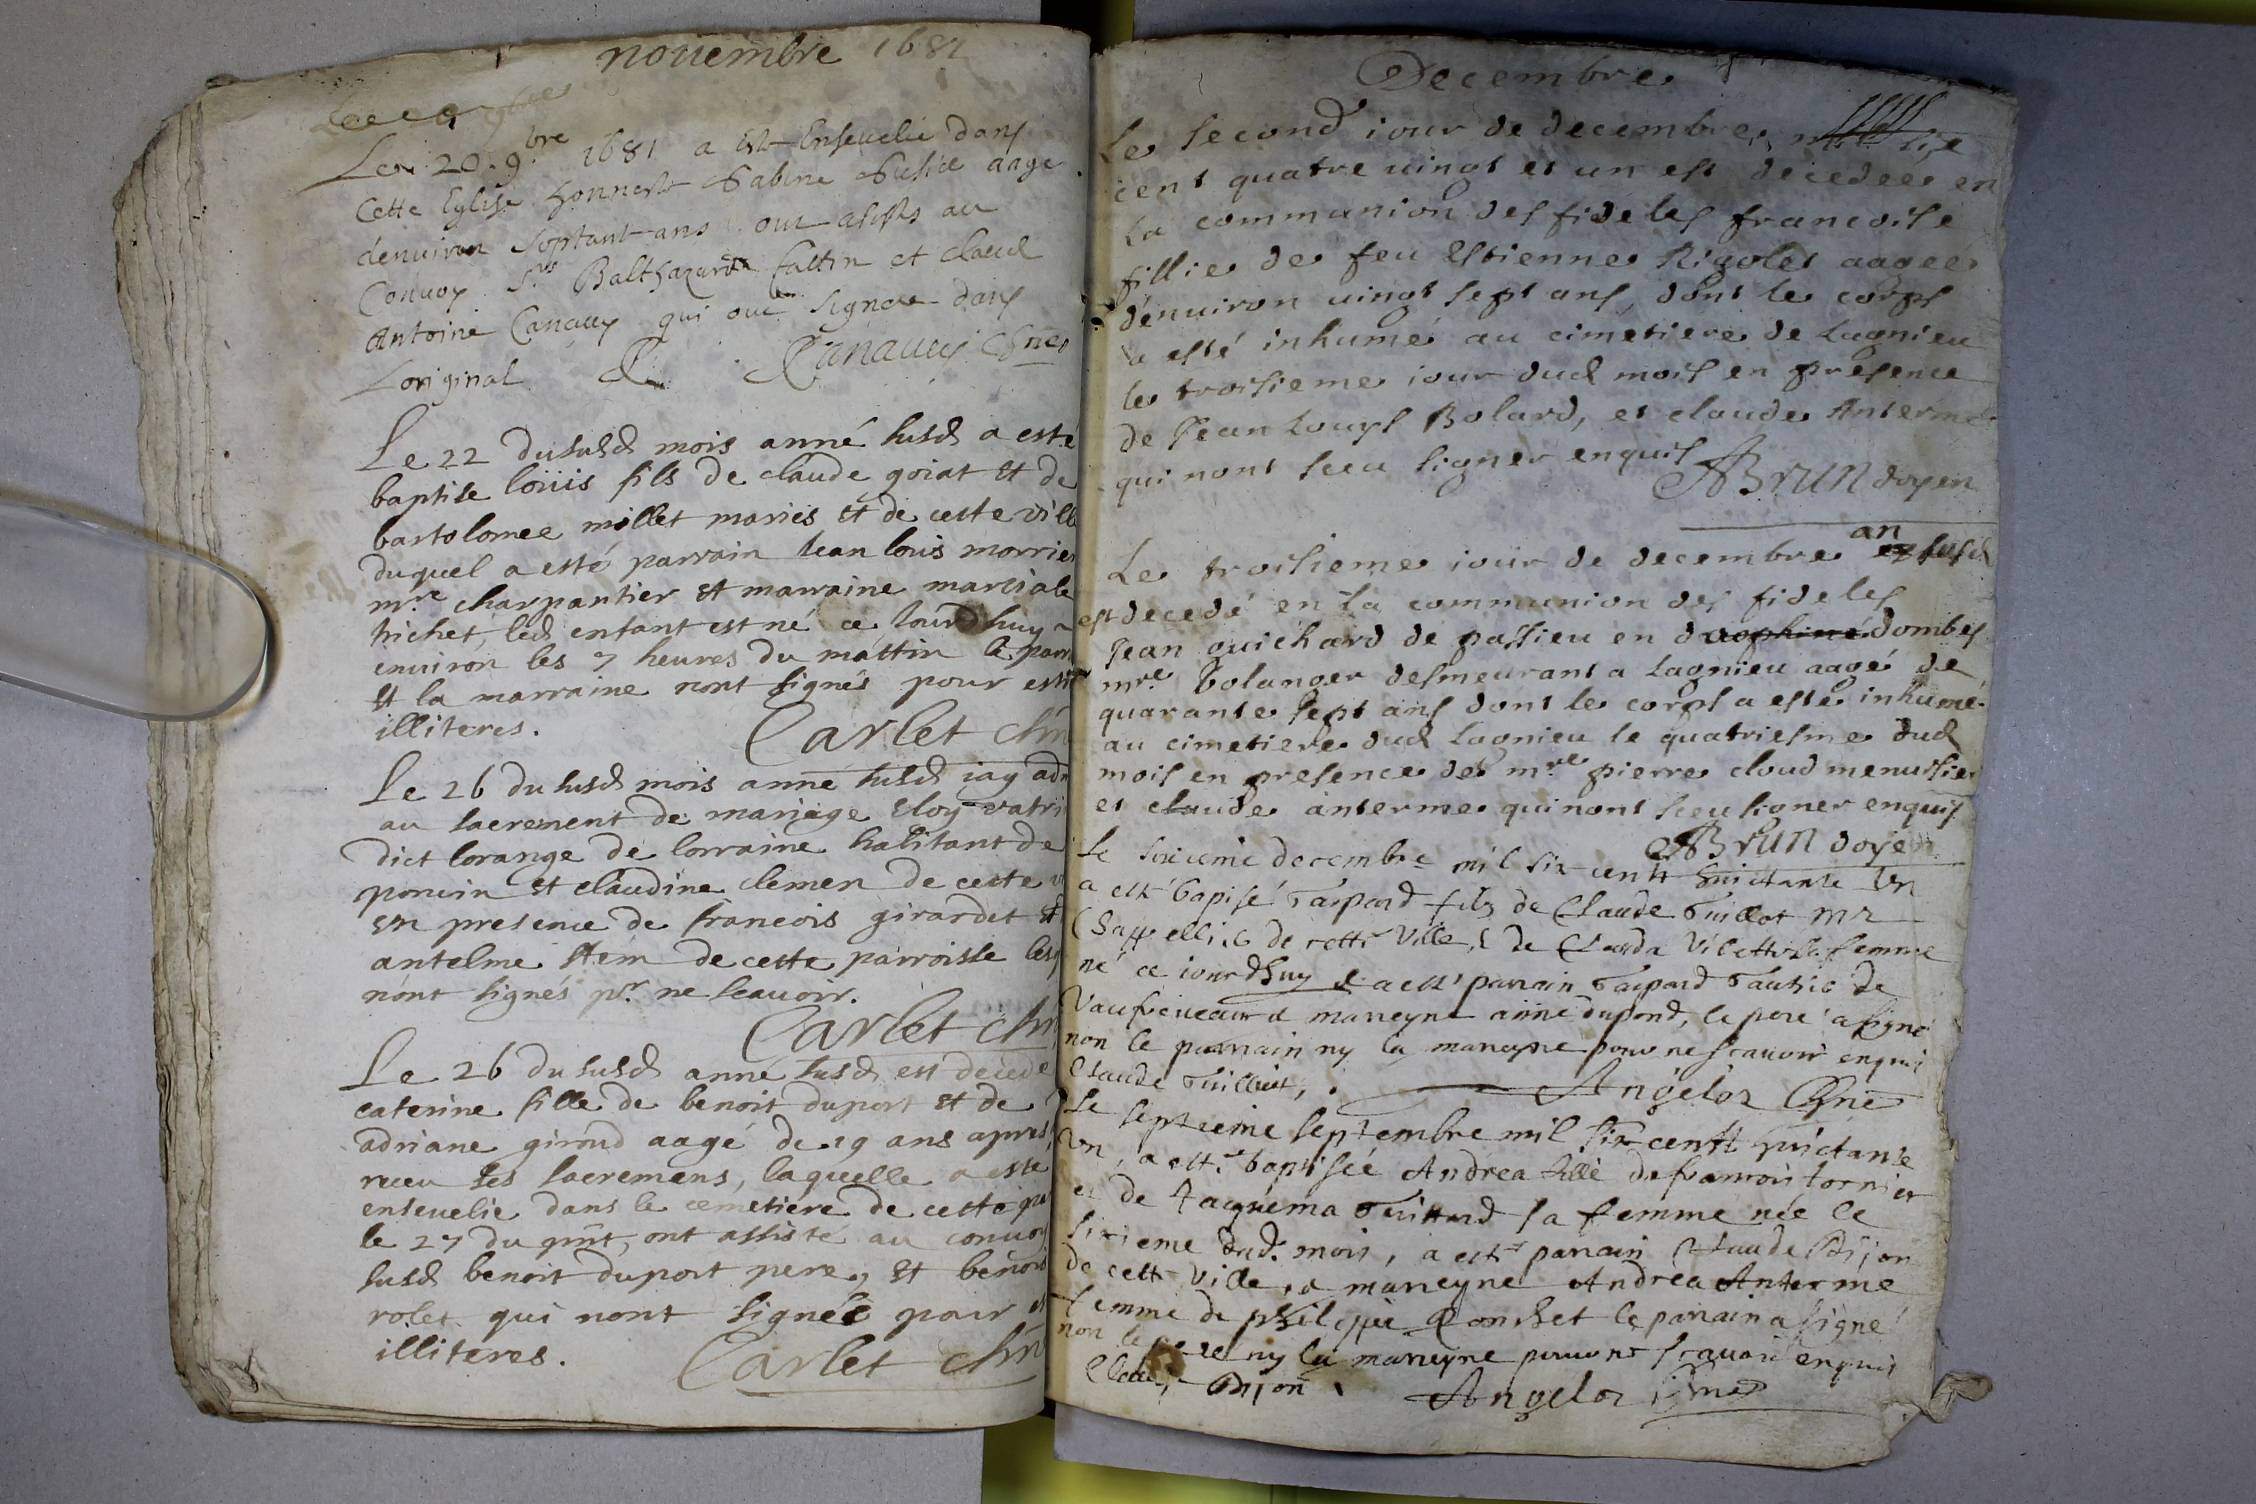 nouembre 1681
Le 20. 9bre 1681 a Este Enseuelie dans
Cette Eglise honneste Sabine aage
denuiron Septant ans ont asistes au
Conuoy Srs Balthazard Cattin et claud
Antoine Canauy qui ont Signe dans
Loriginal Canauy Chne
Le 22 du susd mois anné susd a esté
baptise loüis fils de claude goiat et de
bartolomee millet mariés et de ceste ville
duquel a esté parrain Jean louis morrier
mre charpantier et marraine marciale
trichet, led enfant est né ce Jourdhuy
enuiron les 7 heures du mattin le parr
et la marraine nont signés pour estre
illiteres.
Carlet chn
Le 26 du susd mois anné susd iay adm
au sacrement de mariage Eloy vatri
dict lorange de lorraine habitant de
poncin et claudine clemen de ceste v
en presence de francois girardet et
antelme de ceste parroisse lesq
nont signés pr ne scauoir.
Carlet chn
Le 26 du susd anné susd est decede
caterine fille de benoit duport et de
adriane giroud aagé de 19 ans apres
receu ses sacremens, laquelle a este
enseuelie dans le cemetiere de ceste par
le 27 du pnt, ont assisté au conuoy
susd benoit duport pere, et benoit
rolet qui nont signés pour
illiteres.
Carlet chn
Decembre
Le second iour de decembre mil six
cent quatre uingt et un est decedee en
La communion des fideles francoise
fillie de feu Estienne Rigolet aagee
d'enuiron uingt sept ans, dont le corps
a esté inhumé au cimetiere de Lagnieu
le troisieme iour dud mois en presence
de Jean Louys Bolard, et claude Anterme
qui nont sceu signer enquis
ABrun doyen
Le troisieme iour de decembre an susd
est decedé en La communion des fideles
Jean guichard de passieu en dauphiné dombes
mre bolanger desmeurant a Lagnieu aagé de
quarante sept ans dont le corps a esté inhumé
au cimetiere dud Lagnieu le quatriesme dud
mois en presence de mre pierre cloud menuisier
et claude anterme qui nont sceu signer enquis
ABrun doye
Le sixieme decembre mil six cents huictante Un
a esté bapisé Gaspard fils de Claude Guillot Mr
Chappellie de cette Ville, & de Clauda Vilette sa femme
né ce iourdhuy & a esté parrain Gaspard Gautrie de
& mareyne anne dupond, le pere a signé
non le parrain ny la mareyne pour ne scauoir enquis
Claude Guilliot, Angelot Chne
Le septieme septembre mil six cents huictante
Un, a esté baptisée Andrea fille de francois tornier
et de Jaquema Guittard sa femme née le
sixieme dud. mois, a esté parrain Claude Dijon
de cette Ville, & mareyne Andrea Anterme
femme de philippe Ponchet le parrain a signé
non le pere ny la mareyne pour ne scauoir enquis
Claude Dijon Angelot chne